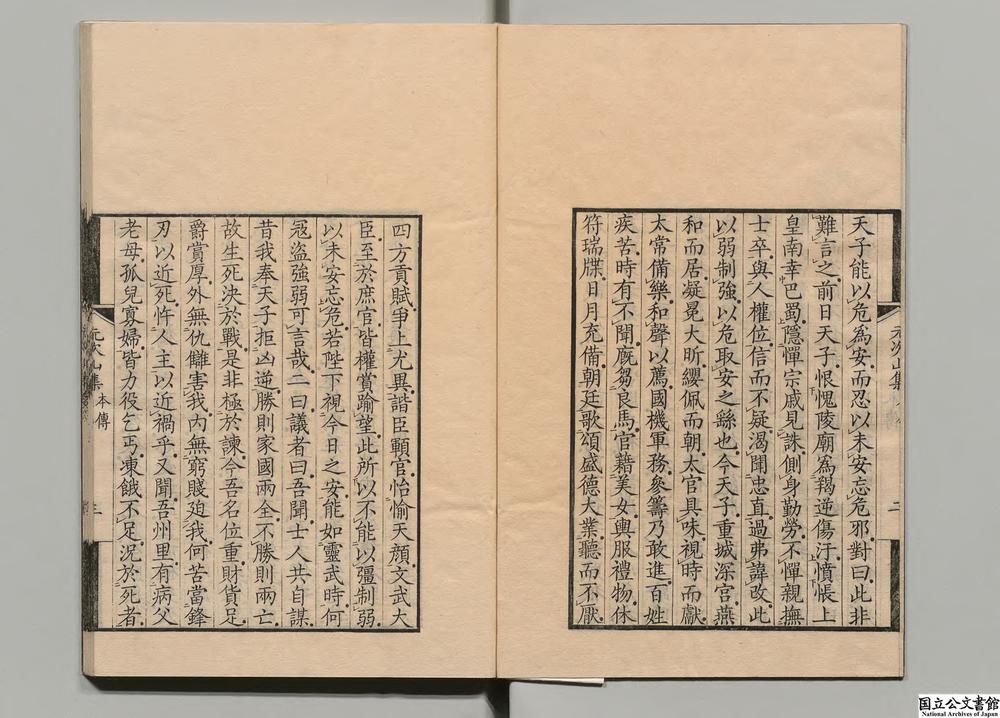 天子能以危爲安而忍以未安忘危邪對曰此非
難言之前日天子恨愧陵廟爲羯逆傷汙憤悵上
皇南幸巴蜀隱憚宗戚見誅側身勤勞不憚親撫
士卒與人權位信而不疑渴聞忠直過弗諱改此
以弱制強以危取安之繇也今天子重城深宮燕
和而居凝冕大昕纓佩而朝太官具味視時而獻
太常備樂和聲以薦國機軍務參籌乃敢進百姓
疾苦時有不聞廐芻良馬官籍美女輿服禮物休
符瑞牒日月充備朝廷歌頌盛德大業聽而不厭
元次山集
二
四方貢賦爭上尤異諧臣顐官怡愉天顏文武大
臣至於庶官皆權賞踰望此所以不能以彊制弱
以未安忘危若陛下視今日之安能如靈武時何
冦盜強弱可言哉二曰議者曰吾聞士人共自謀
昔我奉天子拒凶逆勝則家國兩全不勝則兩亡
故生死決於戰是非極於諫今吾名位重財貨足
爵賞厚外無仇讎害我內無窮賤迫我何苦當鋒
刃以近死忤人主以近禍乎又聞吾州里有病父
老母孤兒寡婦皆力役乞丐凍餓不足況於死者
元次山集 本傳
二
国立公文書館
National Archives of Japan